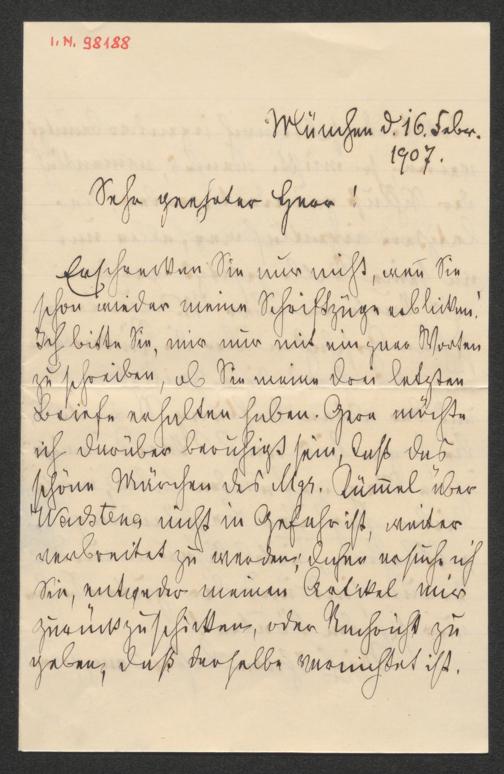 I.N. 98188
München d. 16. Febr.
1907.
Sehr geehrter Herr!
Erschrecken Sie nur nicht, weñ Sie
schon wieder meine Schriftzüge erblicken!
Ich bitte Sie, mir nur mit ein paar Worten
zu schreiben, ob Sie meine drei letzten
Briefe erhalten haben. Gern möchte
ich darüber beruhigt sein, daß das
schöne Märchen des Mgr. über
Wadstena nicht in Gefahr ist, weiter
verbreitet zu werden; daher ersuche ich
Sie, entweder meinen Artikel mir
zurückzuschicken, oder Nachricht zu
geben, daß derselbe vernichtet ist.